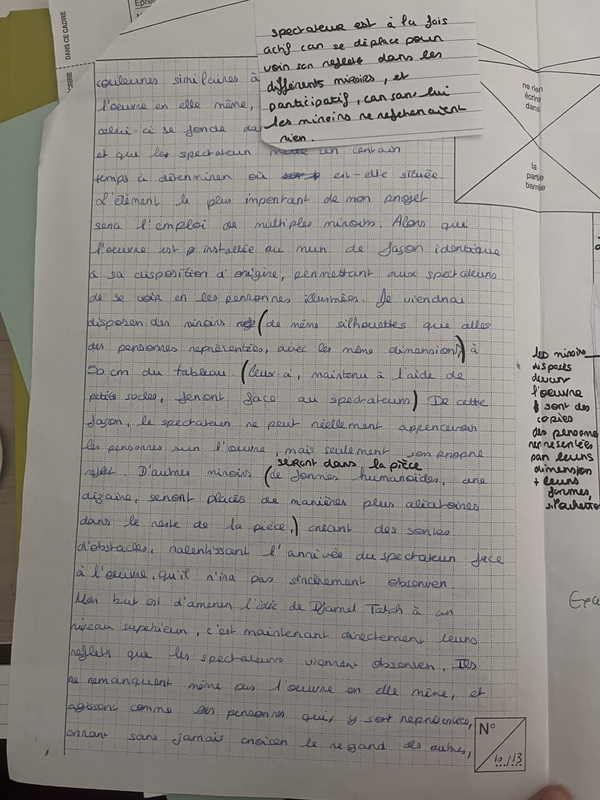 DANS CE CADRE
spectateur est à la fois
actif car se déplace pour
voir son reflets dans les
différents miroirs, et
participatif, car sans lui
les miroirs ne refleteraient
rien.
ne rien
écrire
dans
la
partie
barrée
couleures similaires à
l'oeuvre en elle même,
celui-ci se fonde
et que les spectateur un certain
temps à déterminer où est-elle située.
L'élément le plus important de mon projet
sera l'emploi de multiples miroirs. Alors que
l'oeuvre est installée au mur de façon identique
à sa disposition d'origine, permettant aux spectateurs
de se voir en les personnes illustrées. Je viendrai
disposer des miroirs (de même silhouettes que celles
des personnes représentées, avec les même dimensions) à
50 cm du tableau (ceux-ci, maintenu à l'aide de
petits socles, feront face au spectateurs) De cette
façon, le spectateur ne peut réellement appercevoir
les personnes sur l'oeuvre, mais seulement son propre
reflet. D'autres miroirs (de formes humanoïdes, une
seront dans la pièce
dizaine, seront placés de manières plus aliatoires
dans le reste de la pièce,) créant des sortes
d'obstacles, ralentissant l'arrivée du spectateur face
à l'oeuvre, qu'il n'ira pas sincèrement observer.
Mon but est d'amener l'idée de Djamel Tatah à un
niveau supérieur, c'est maintenant directement leurs
reflets que les spectateurs viennent observer. Ils
ne remarquent même pas l'oeuvre en elle même, et
agissent comme les personnes qui y sont représentées,
errant sans jamais croiser le regard des autres,
les miroirs
disposés
devant
l'oeuvre
sont des
copies
des personnes
représentées
par leurs
dimension
+ leurs
formes,
silhouettes
N°
10/13